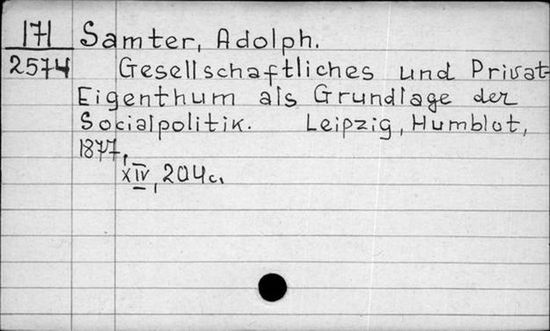 171 Samter, Adolph.
2574 Gesellschaftliches und Privat-
Eigenthum als Grundlage der
Socialpolitik. Leipzig, Humblot,
1877,
XIV, 204 c.